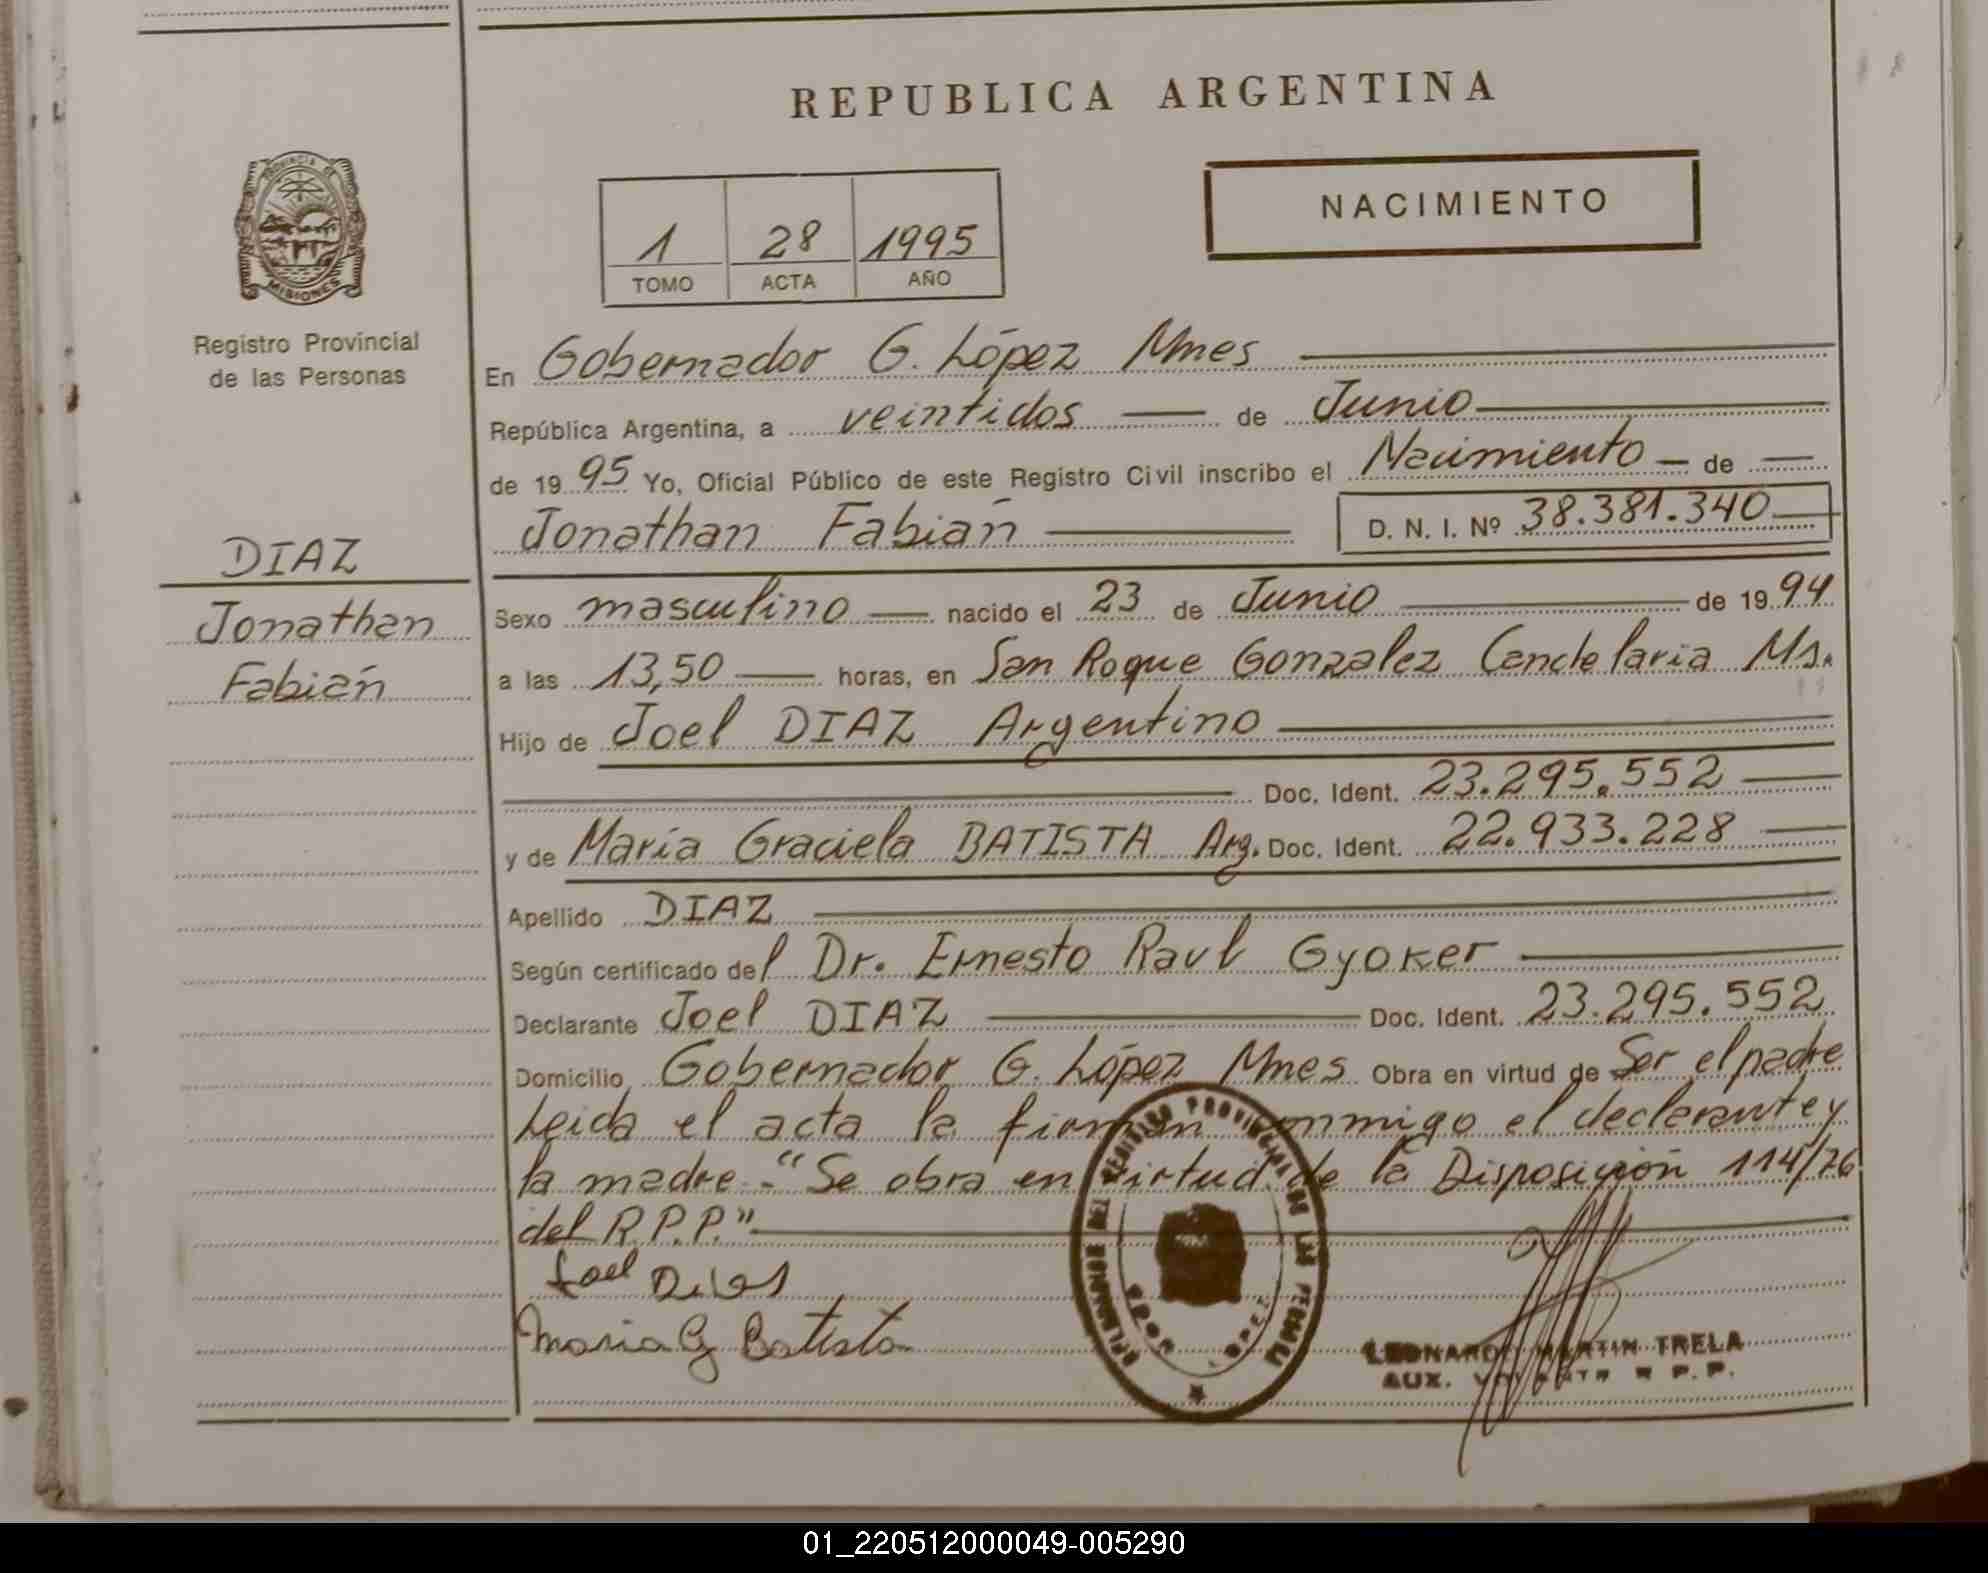 REPUBLICA ARGENTINA
PROVINCIA DE
MISIONES
Registro Provincial
de las Personas
NACIMIENTO
1 28 1995
TOMO ACTA AÑO
En Gobernador G. López Mnes
República Argentina, a veintidos de Junio
de 1995 Yo, Oficial Público de este Registro Civil inscribo el Nacimiento de
Jonathan Fabián D. N. I. Nº 38.381.340
DIAZ
Jonathan
Fabián
Sexo masculino nacido el 23 de Junio de 1994
a las 13,50 horas, en San Roque Gonzalez Candelaria Ms.
Hijo de Joel DIAZ Argentino
Doc. Ident. 23.295.552
y de María Graciela BATISTA Arg. Doc. Ident. 22.933.228
Apellido DIAZ
Según certificado del Dr. Ernesto Raul Gyoker
Declarante Joel DIAZ Doc. Ident. 23.295.552
Domicilio Gobernador G. López Mnes Obra en virtud de Ser el padre
Leida el acta la firman conmigo el declarante y
la madre.- "Se obra en virtud de la Disposición 114/76
del R.P.P."
Joel Dias
Maria G Batista
DEL REGISTRO PROVINCIAL DE LAS
LEONARDO MARTIN TRELA
AUX. R P.P.
01_220512000049-005290